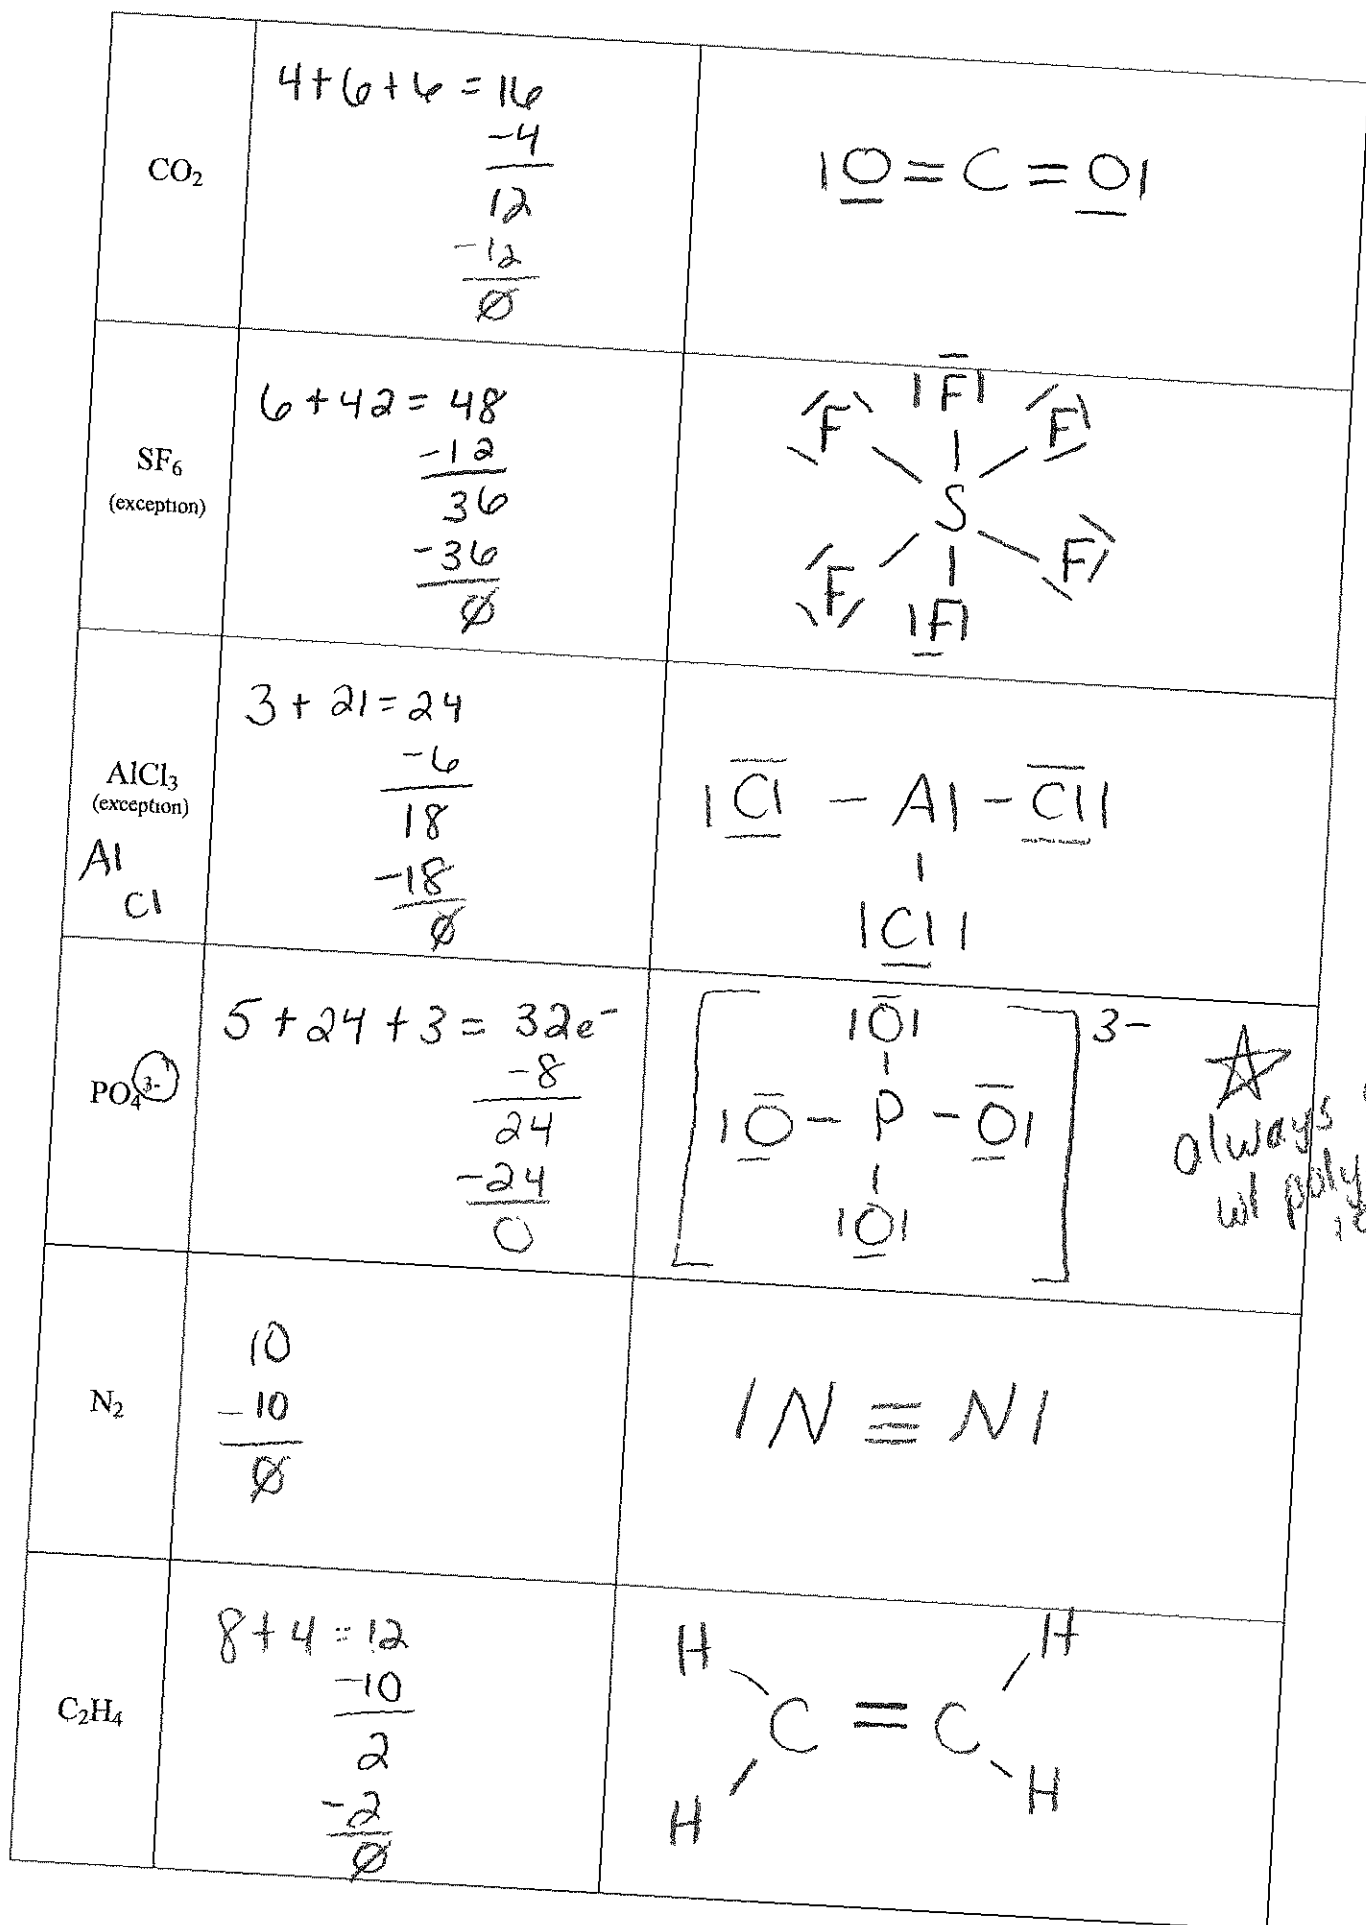 CO₂
4+6+6 = 16
-4
12
-12
∅
|O = C = O|
SF₆
(exception)
6+42 = 48
-12
36
-36
∅
F |F| F
S
F |F| F
AlCl₃
(exception)
Al
Cl
3 + 21 = 24
-6
18
-18
∅
|Cl - Al - Cl|
|
|Cl|
PO₄³⁻
5 + 24 + 3 = 32e⁻
-8
24
-24
0
[ |O| ]³⁻
|
|O - P - O|
|
|O|
☆
always
w/ poly
N₂
10
-10
∅
|N ≡ N|
C₂H₄
8+4 = 12
-10
2
-2
∅
H H
C = C
H H